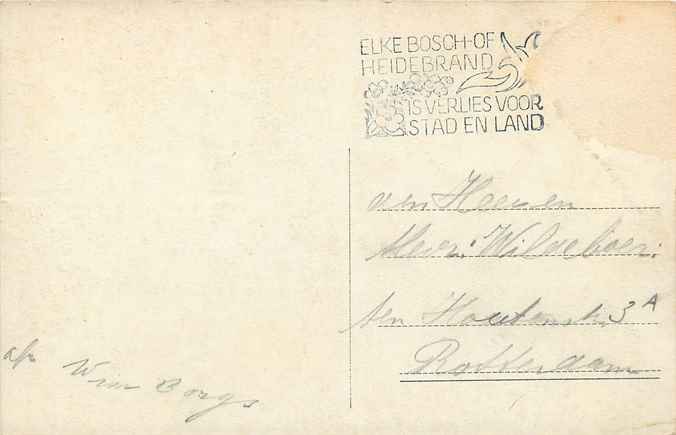 ELKE BOSCH-OF
HEIDEBRAND
IS VERLIES VOOR
STAD EN LAND
den Heer en
Mevr. Wildeboer.
3A
Rotterdam
afz Wim Borgs